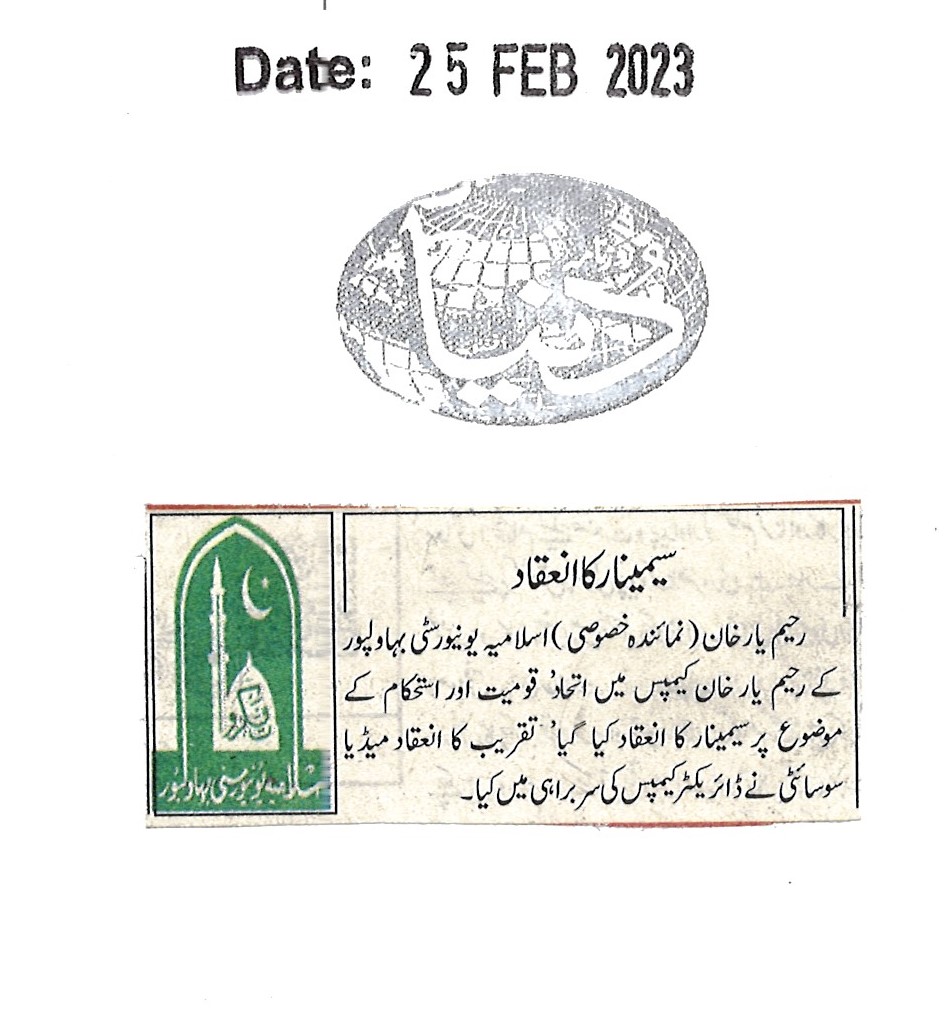 Date: 25 FEB 2023
روزنامہ
دنیا
سیمینار کا انعقاد
رحیم یار خان (نمائندہ خصوصی) اسلامیہ یونیورسٹی بہاولپور
کے رحیم یار خان کیمپس میں اتحاد’ قومیت اور استحکام کے
موضوع پر سیمینار کا انعقاد کیا گیا’ تقریب کا انعقاد میڈیا
سوسائٹی نے ڈائریکٹر کیمپس کی سربراہی میں کیا۔
اسلامیہ یونیورسٹی بہاولپور